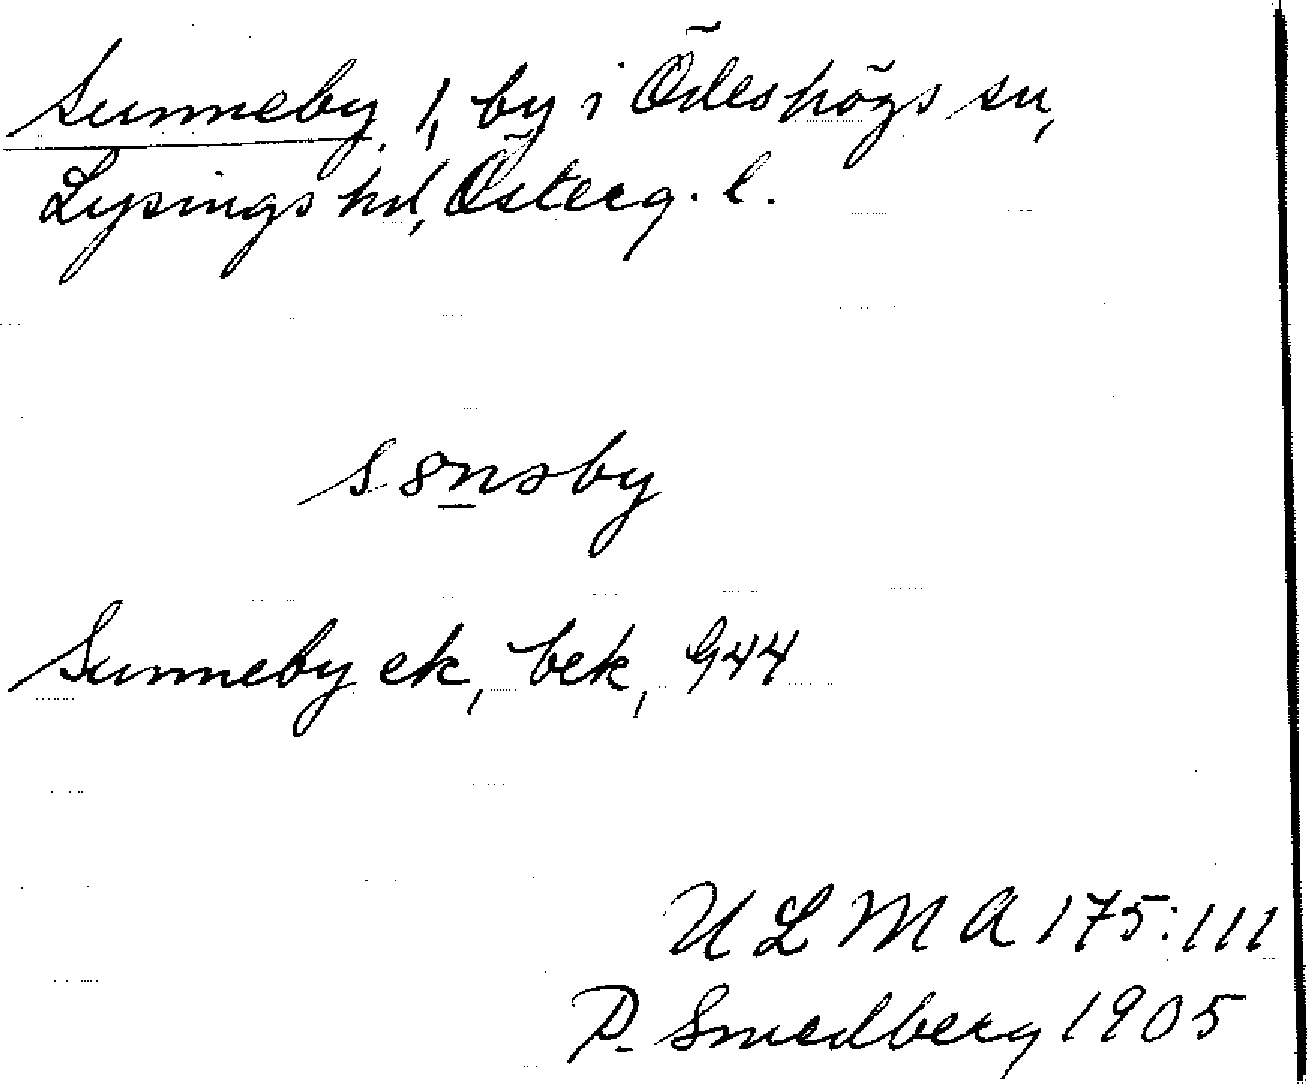 Sunneby, 1, by i Ödeshögs sn,
Lysings hd, Österg. l.
s8nəby
Sunneby ek, bek, 944
ULMA 175:111
P. Smedberg 1905